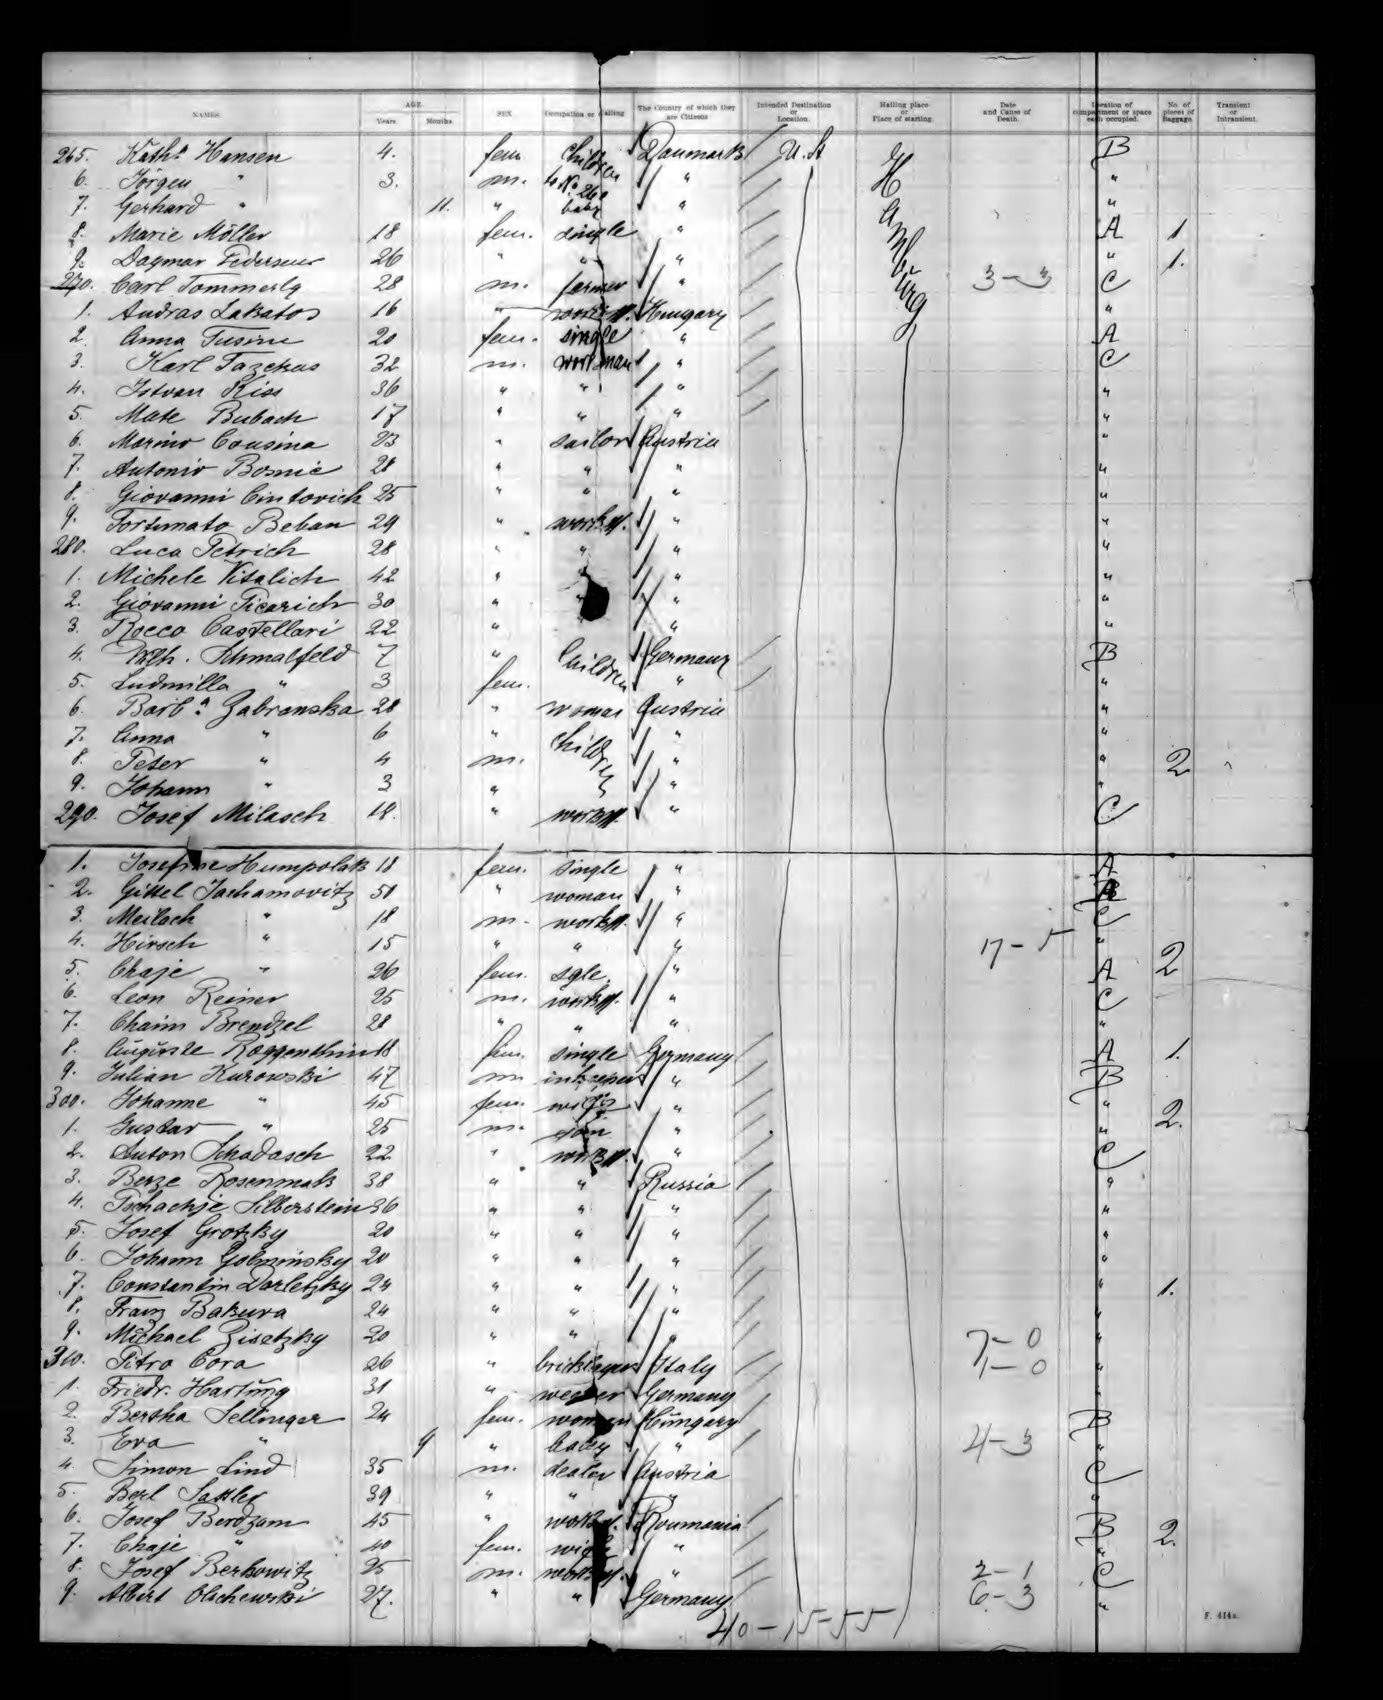 NAMES. AGE Years. Months. SEX Occupation or Calling The Country of which they are Citizens Intended Destination or Location. Hailing place or Place of starting. Date and Cause of Death. Location of compartment or space each occupied. No. of pieces of Baggage. Transient or Intransient.
265. Kath.a Hansen 4. fem children Danmark U. S. Hamburg B
6. Jörgen " 3. m. to No 260 " "
7. Gerhard " 11. " baby " "
8. Marie Möller 18 fem. single " A 1
9. Dagmar Pedersen 26 " " " " 1.
270. Carl 28 m. farmer " 3-3 C
1. Andras Lakatos 16 " workm. Hungary "
2. Anna 20 fem. single " A
3. Karl Fazekas 32 m. workman " C
4. Istvan Kiss 36 " " " "
5. Mate Bubach 17 " " " "
6. Marino Cousina 23 " sailor Austria "
7. Antonio Bosnic 28 " " " "
8. Giovanni Cintovich 25 " " " "
9. Fortunato Beban 29 " workm. " "
280. Luca Petrich 28 " " " "
1. Michele Vitalich 42 " " "
2. Giovanni Picarich 30 " " " "
3. Rocco Castellari 22 " " "
4. Wilh. Schmalfeld 7 " Children Germany B
5. Ludmilla " 3 fem. " "
6. Barb.a Zabranska 28 " woman Austria "
7. Anna " 6 " children " "
8. Peter " 4 m. " " 2
9. Johann " 3 " " "
290. Josef Milasch 18. " workm. " C
1. Josefine Humpolak 18 fem. single " A
2. Gittel Jachamovitz 50 " woman " B
3. Meilach " 18 m. workm. " C
4. Hirsch " 15 " " " 17-5 " 2
5. Chaje " 26 fem. sgle. " A
6. Leon Reiner 25 m. workm. " C
7. Chaim Brendzel 28 " " " "
8. Auguste Roggenthin 18 fem. single Germany A 1.
9. Julian Kurowski 47 m inkeeper " B
300. Johanne " 45 fem. wife " "
1. Gustav " 25 m. son " " 2.
2. Anton Schadasch 22 " workm. " C
3. Berze Rosenmak 38 " " Russia "
4. Silberstein 36 " " " "
5. Josef Grotzky 20 " " " "
6. Johann Golminsky 20 " " " "
7. Constantin Dorletzky 24 " " " " 1.
8. Franz Bakura 24 " " " "
9. Michael Zisetzky 20 " " " 7-0 "
310. Pitro Cora 26 " bricklayer Italy 1-0 "
1. Friedr. Hartung 31 " Germany "
2. Bertha Sellinger 24 fem. woman Hungary B
3. Eva " 9 " baby " 4-3 "
4. Simon Lind 35 m. dealer Austria C
5. Berl Sattler 39 " " " "
6. Josef Berdzam 45 " workm. Roumania B 2.
7. Chaje " 40 fem. wife " "
8. Josef Berkowitz 25 m. workm. " 2-1 C
9. Albert Olschewski 27. " " Germany 6-3 "
40-15-55
F. 414a.